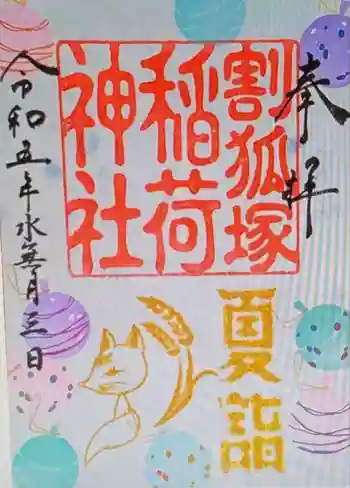 奉拝
割狐塚
稲荷
神社
令和五年水無月三日
夏詣